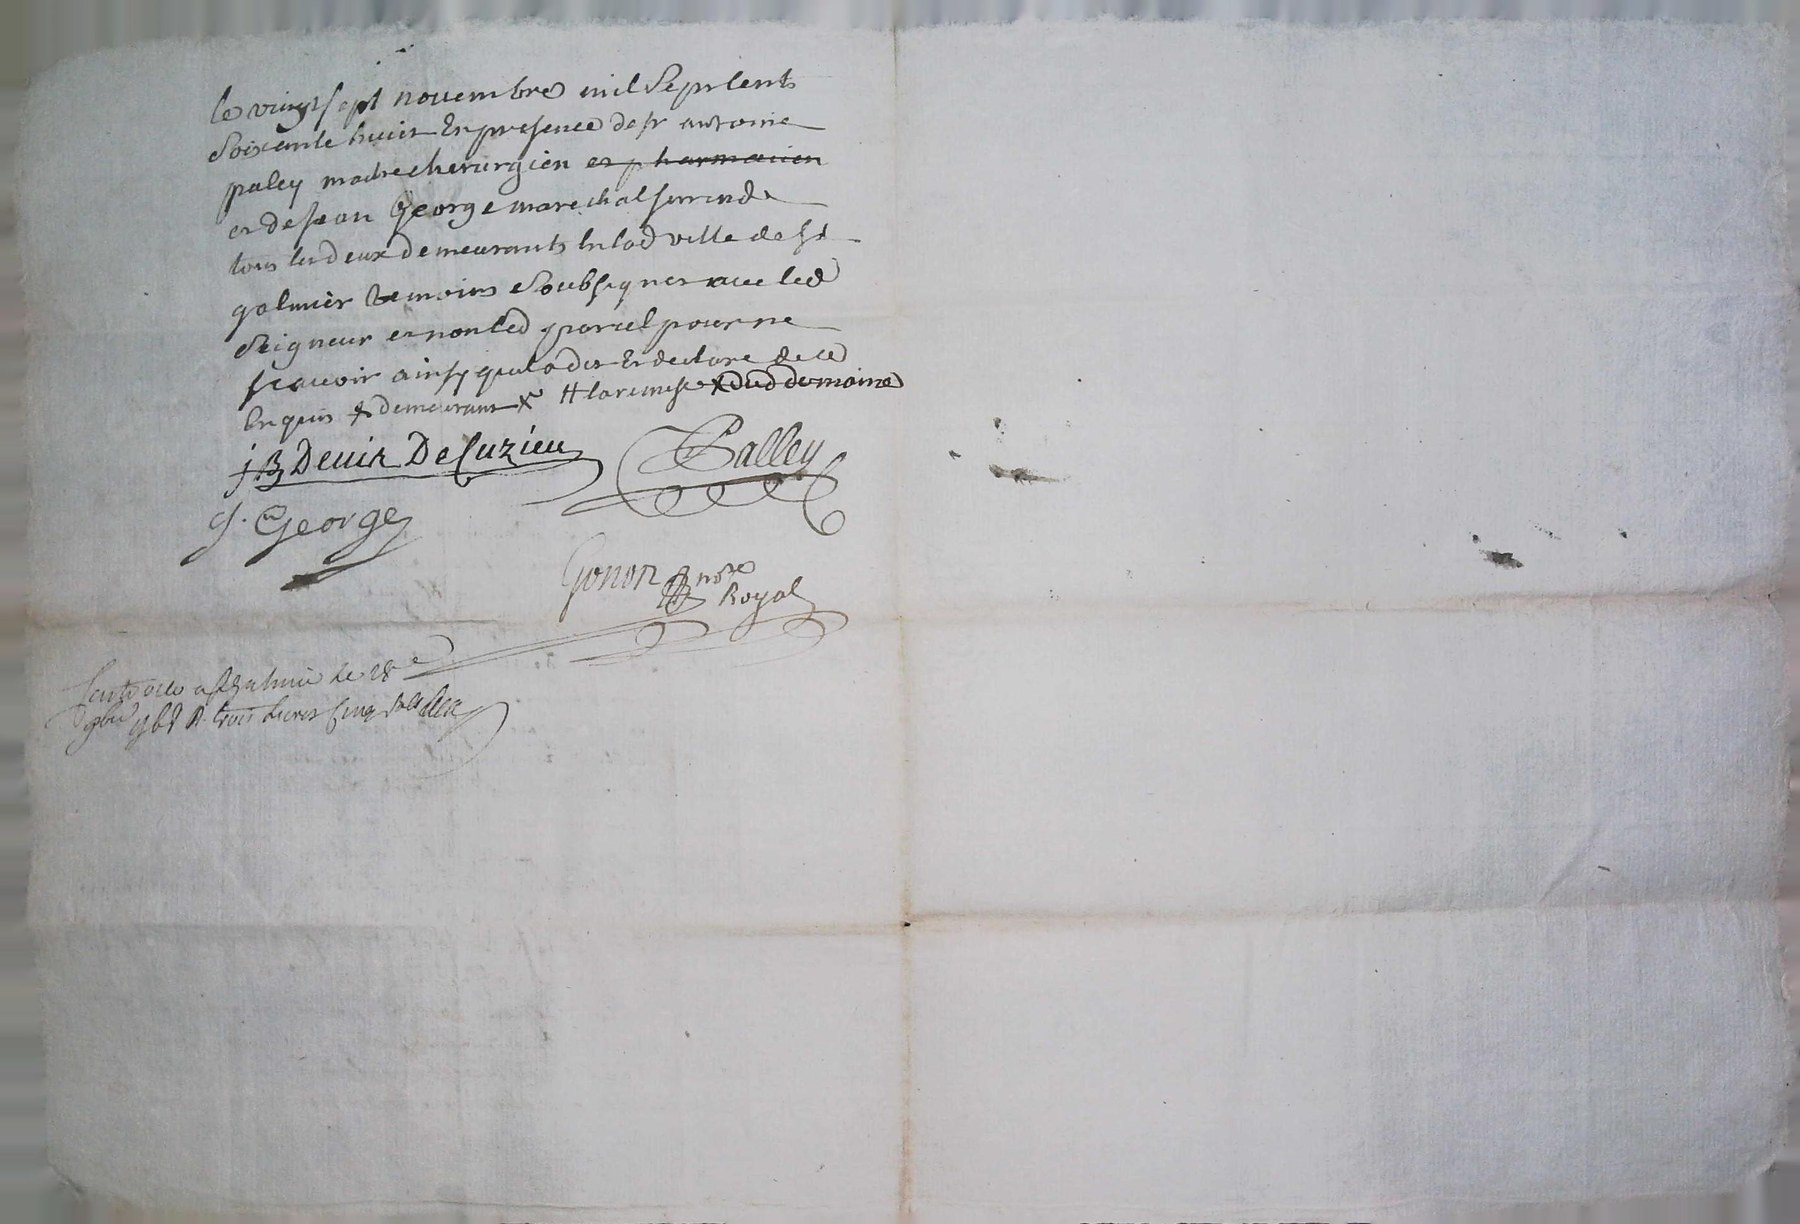 le vingt sept novembre mil sept cents
soixante huit En presence de sr antoine
paley maitre cherurgien et pharmacien
et de jean George marechal ferrand
tous les deux demeurants En lad ville de St
galmier temoins soubsignes avec led
seigneur et non led pour ne
scavoir ainsy qu'il a dit Et declaré de ce
Enquis demeurant x H x dud domaine
j B Devin De Cuzieu Palley
J. George
Gonon nore
Royal
a St galmier le 28e
9bre 1768 R. trois livres cinq sols